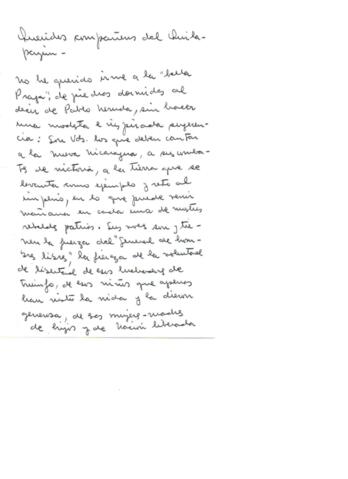 Queridos compañeros del Quila-
payún -
No he querido irme a la "bella
Praga", de piedras dormidas al
decir de Pablo Neruda, sin hacer
una modesta e inspirada sugeren-
cia: Son Vds. los que deben cantar
a la nueva Nicaragua, a su comba-
te de victoria, a la tierra que se
levanta como ejemplo y reto al
imperio, en lo que puede venir
mañana en cada una de nuestras
rebeldes patrias. Sus voces son y tie-
nen la fuerza del "General de hom-
bres libres", la fuerza de la voluntad
de libertad de esos luchadores de
triunfo, de esos niños que apenas
han visto la vida y la dieron
generosa, de esas mujeres-madres
de hijos y de nación liberada